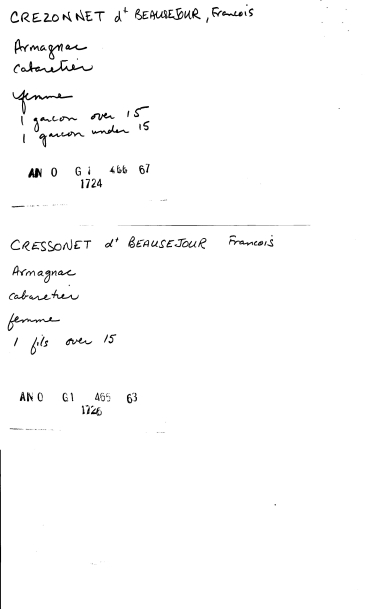 CREZONNET dt BEAUSEJOUR, Francois
Armagnac
cabaretier
femme
1 garcon over 15
1 garcon under 15
AN O G1 466 67
1724
CRESSONET dt BEAUSEJOUR Francois
Armagnac
cabaretier
femme
1 fils over 15
AN O G1 465 63
1726